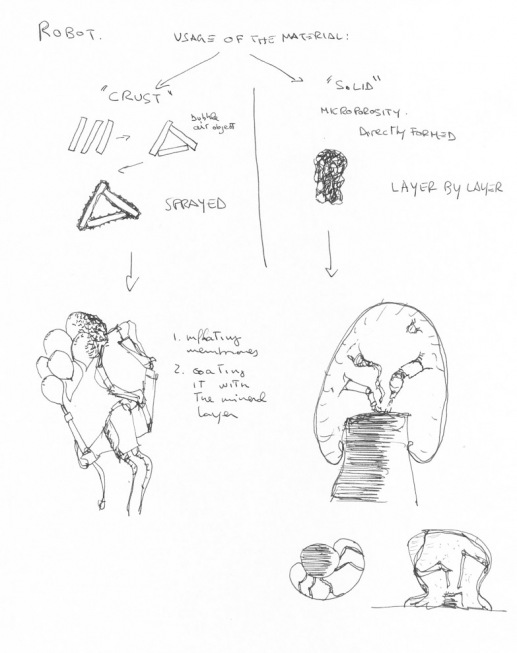 ROBOT.
USAGE OF THE MATERIAL:
"CRUST"
bubble
air object
SPRAYED
1. inflating
membranes
2. coating
it with
the mineral
layer
"SOLID"
MICROPOROSITY.
DIRECTLY FORMED
LAYER BY LAYER